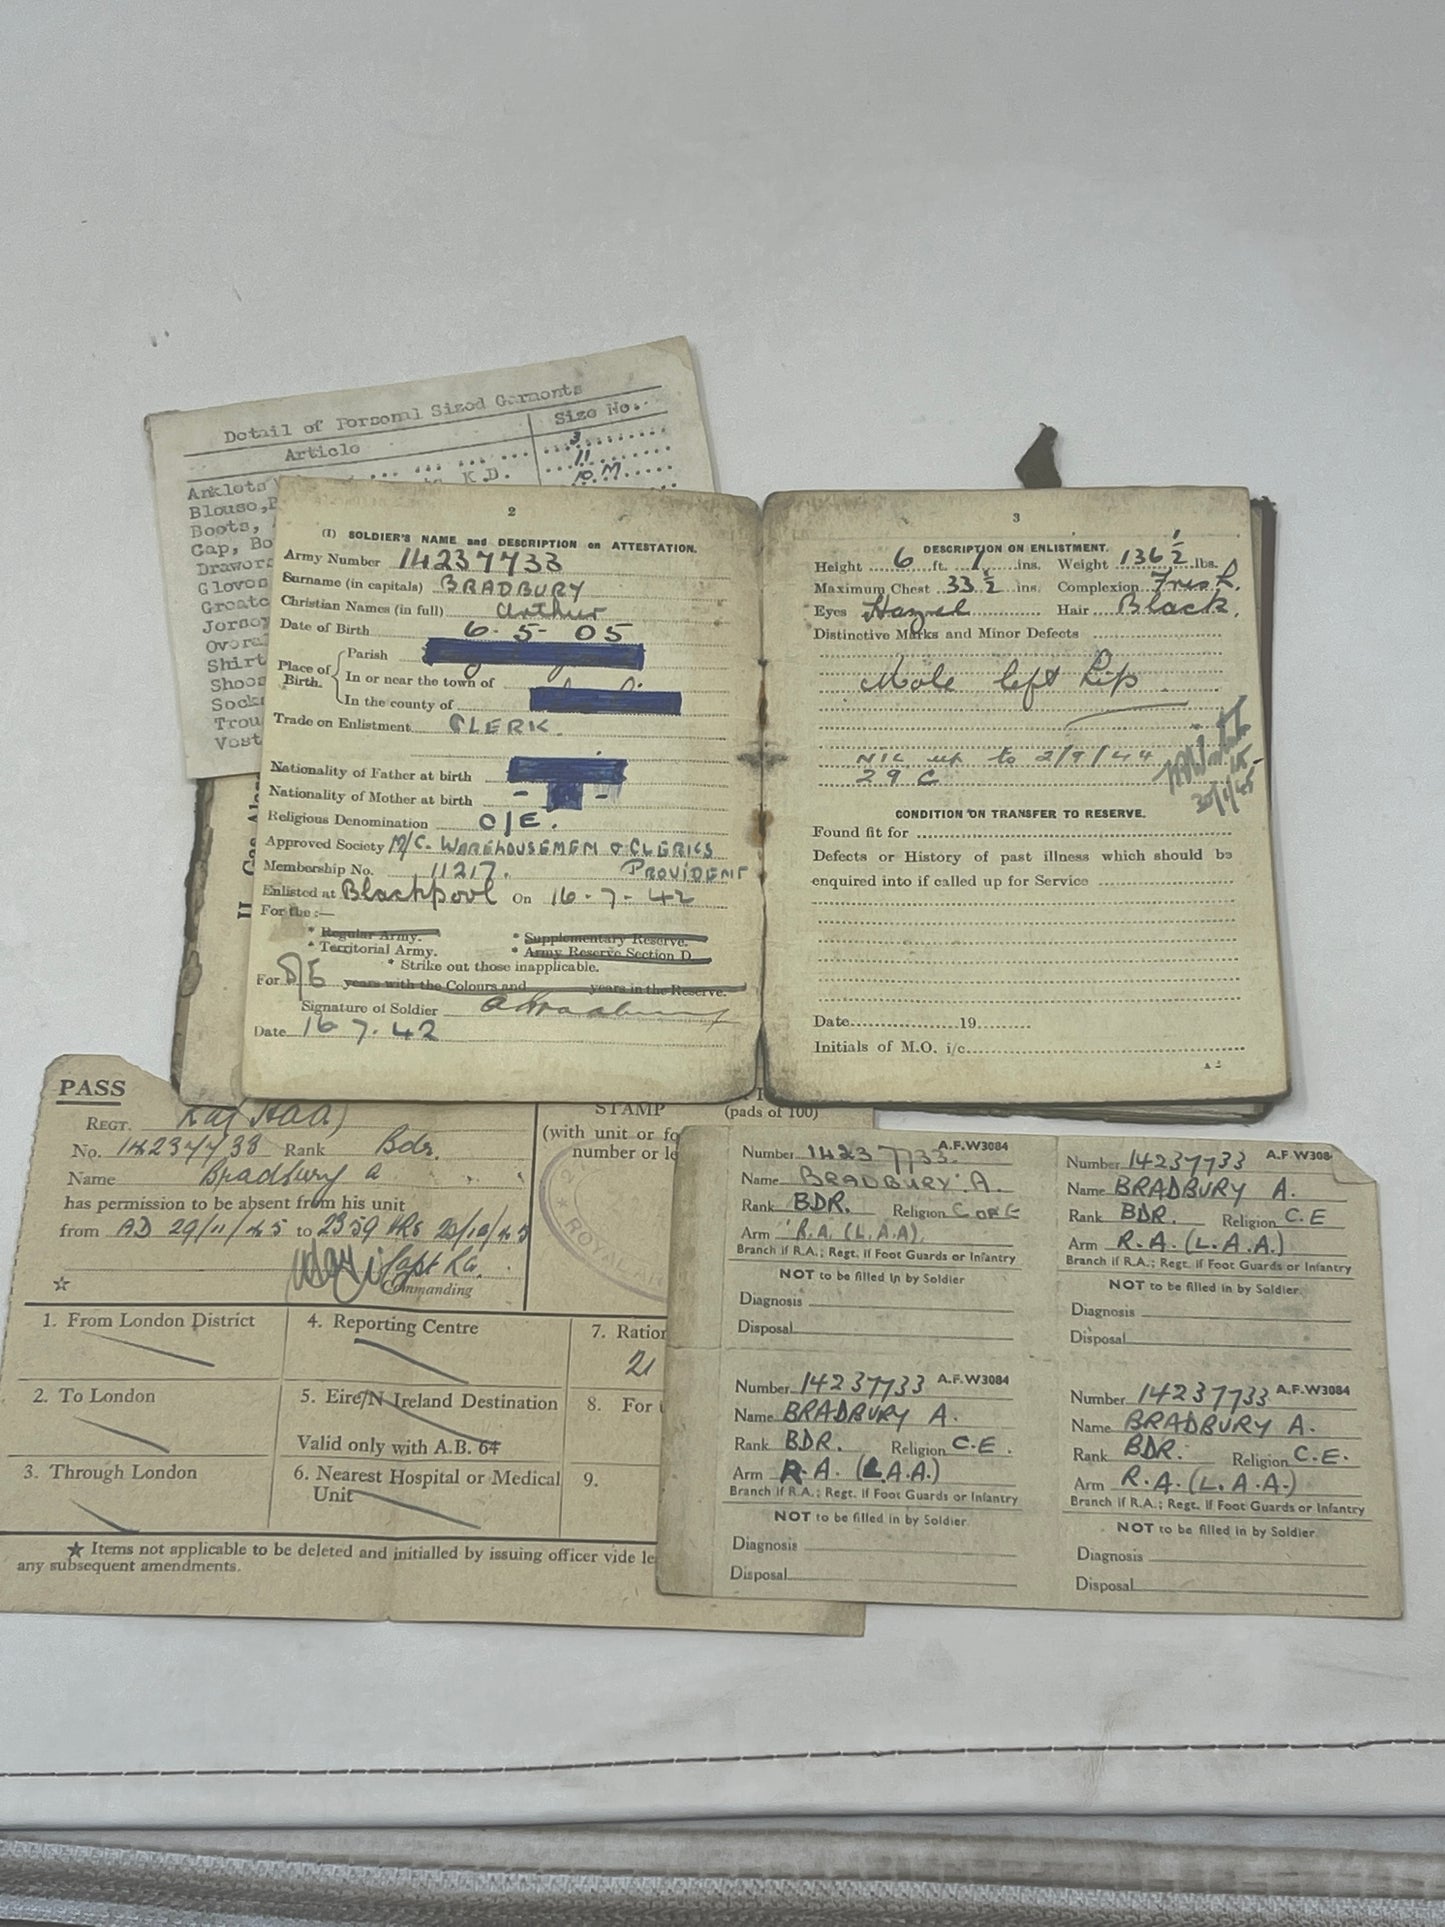 Detail of Personal Sized Garments
Article Size No.
3
Anklets K.D. 11
Blouse, 10.M
Boots,
Cap, Bo
Drawers
Gloves
Greatc
Jersey
Overal
Shirt
Shoes
Socks
Trou
Vest
2
(I) SOLDIER'S NAME and DESCRIPTION on ATTESTATION.
Army Number 14237733
Surname (in capitals) BRADBURY
Christian Names (in full) Arthur
Date of Birth 6-5-05
Place of Birth. Parish
In or near the town of
In the county of
Trade on Enlistment CLERK.
Nationality of Father at birth
Nationality of Mother at birth
Religious Denomination C/E.
Approved Society M/C. WAREHOUSEMEN & CLERKS
PROVIDENT
Membership No. 11217.
Enlisted at Blackpool On 16-7-42
For the:—
* Regular Army. * Supplementary Reserve.
* Territorial Army. * Army Reserve Section D.
* Strike out those inapplicable.
For D/E years with the Colours and years in the Reserve.
Signature of Soldier A Bradbury
Date 16 7. 42
3
DESCRIPTION ON ENLISTMENT.
Height 6 ft. 1 ins. Weight 136 ½ lbs.
Maximum Chest 33 ½ ins. Complexion Fresh.
Eyes Hazel Hair Black.
Distinctive Marks and Minor Defects
Mole left hip
NIL up to 2/9/44
29 C
CONDITION ON TRANSFER TO RESERVE.
Found fit for
Defects or History of past illness which should be
enquired into if called up for Service
Date 19
Initials of M.O. i/c
PASS
REGT. HAA)
No. 14237733 Rank Bdr.
Name Bradbury A
has permission to be absent from his unit
from AD 29/11/45 to 2359 HRS
Capt RA.
Commanding
STAMP (pads of 100)
(with unit or fo
number or le
ROYAL AR
1. From London District
2. To London
3. Through London
4. Reporting Centre
5. Eire/N Ireland Destination
Valid only with A.B. 64
6. Nearest Hospital or Medical
Unit
7. Ration
21
8. For
9.
Items not applicable to be deleted and initialled by issuing officer vide le
any subsequent amendments.
Number 14237733. A.F.W3084
Name BRADBURY. A.
Rank BDR. Religion C OF E
Arm R.A. (L.A.A).
Branch if R.A.; Regt. if Foot Guards or Infantry
NOT to be filled in by Soldier
Diagnosis
Disposal
Number 14237733 A.F.W308
Name BRADBURY A.
Rank BDR. Religion C.E
Arm R.A. (L.A.A.)
Branch if R.A.; Regt. if Foot Guards or Infantry
NOT to be filled in by Soldier.
Diagnosis
Disposal
Number 14237733 A.F.W3084
Name BRADBURY A.
Rank BDR. Religion C.E.
Arm R.A. (L.A.A.)
Branch if R.A.; Regt. if Foot Guards or Infantry
NOT to be filled in by Soldier.
Diagnosis
Disposal
Number 14237733 A.F.W3084
Name BRADBURY A.
Rank BDR. Religion C.E.
Arm R.A. (L.A.A.)
Branch if R.A.; Regt. if Foot Guards or Infantry
NOT to be filled in by Soldier.
Diagnosis
Disposal